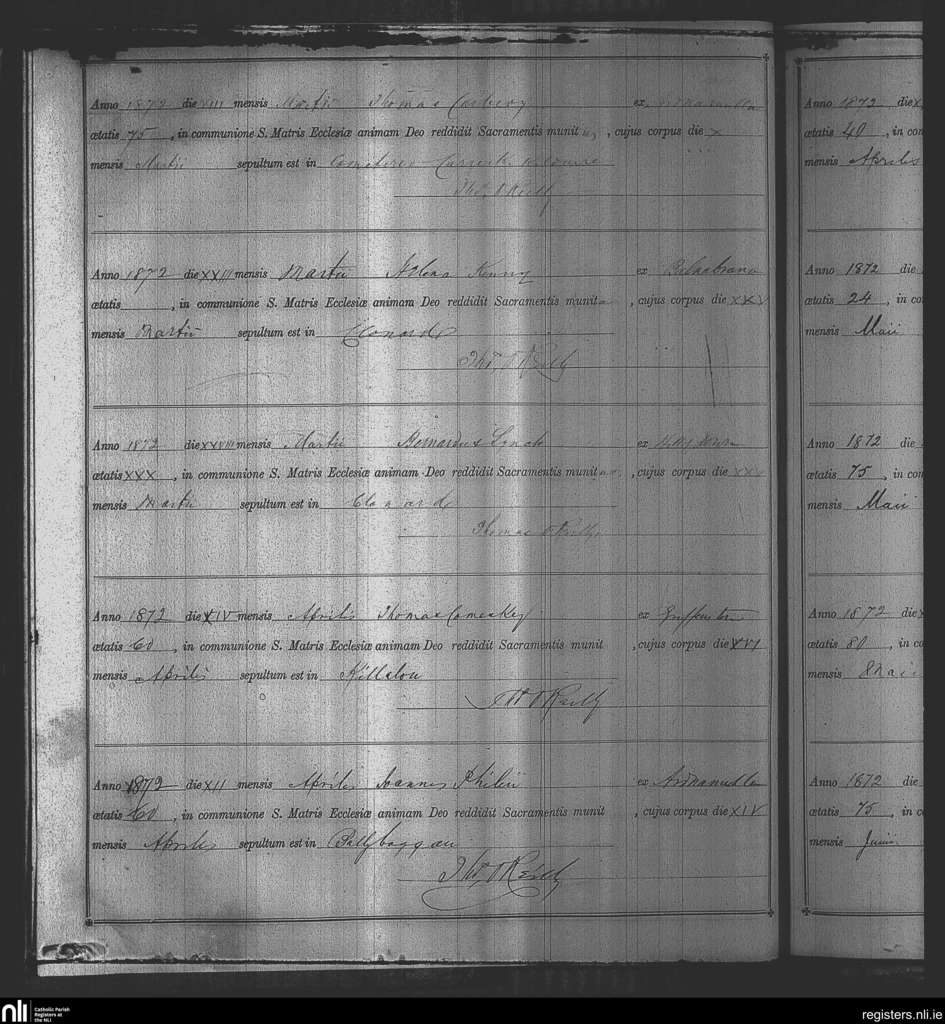 Anno 1872 die VIII mensis Martii Thomas Carberry ex
ætatis 75, in communione S. Matris Ecclesiæ animam Deo reddidit Sacramentis munitus, cujus corpus die X
mensis Martii sepultum est in
Thos. O'Reilly
Anno 1872 die XXIII mensis Martii Kenny ex
ætatis , in communione S. Matris Ecclesiæ animam Deo reddidit Sacramentis munita , cujus corpus die XXV
mensis Martii sepultum est in Clonard
Thos. O'Reilly
Anno 1872 die XXVIII mensis Martii Bernardus Lynch ex
ætatis XXX , in communione S. Matris Ecclesiæ animam Deo reddidit Sacramentis munitus , cujus corpus die
mensis Martii sepultum est in Clonard
Thomas O'Reilly
Anno 1872 die XIV mensis Aprilis Thomas Comeskey ex
ætatis 60 , in communione S. Matris Ecclesiæ animam Deo reddidit Sacramentis munit , cujus corpus die XVI
mensis Aprilis sepultum est in Killalon
Thos O'Reilly
Anno 1872 die XII mensis Aprilis Joannes ex Ardnamulla
ætatis 60 , in communione S. Matris Ecclesiæ animam Deo reddidit Sacramentis munit , cujus corpus die XIV
mensis Aprilis sepultum est in
Thos. O'Reilly
Anno 1872 die
ætatis 40 , in con
mensis Aprilis
Anno 1872 die
ætatis 24 , in co
mensis Maii
Anno 1872 die
ætatis 75 , in con
mensis Maii
Anno 1872 die
ætatis 80 , in co
mensis Maii
Anno 1872 die
ætatis 75 , in c
mensis Junii
nli Catholic Parish
Registers at
the NLI
registers.nli.ie